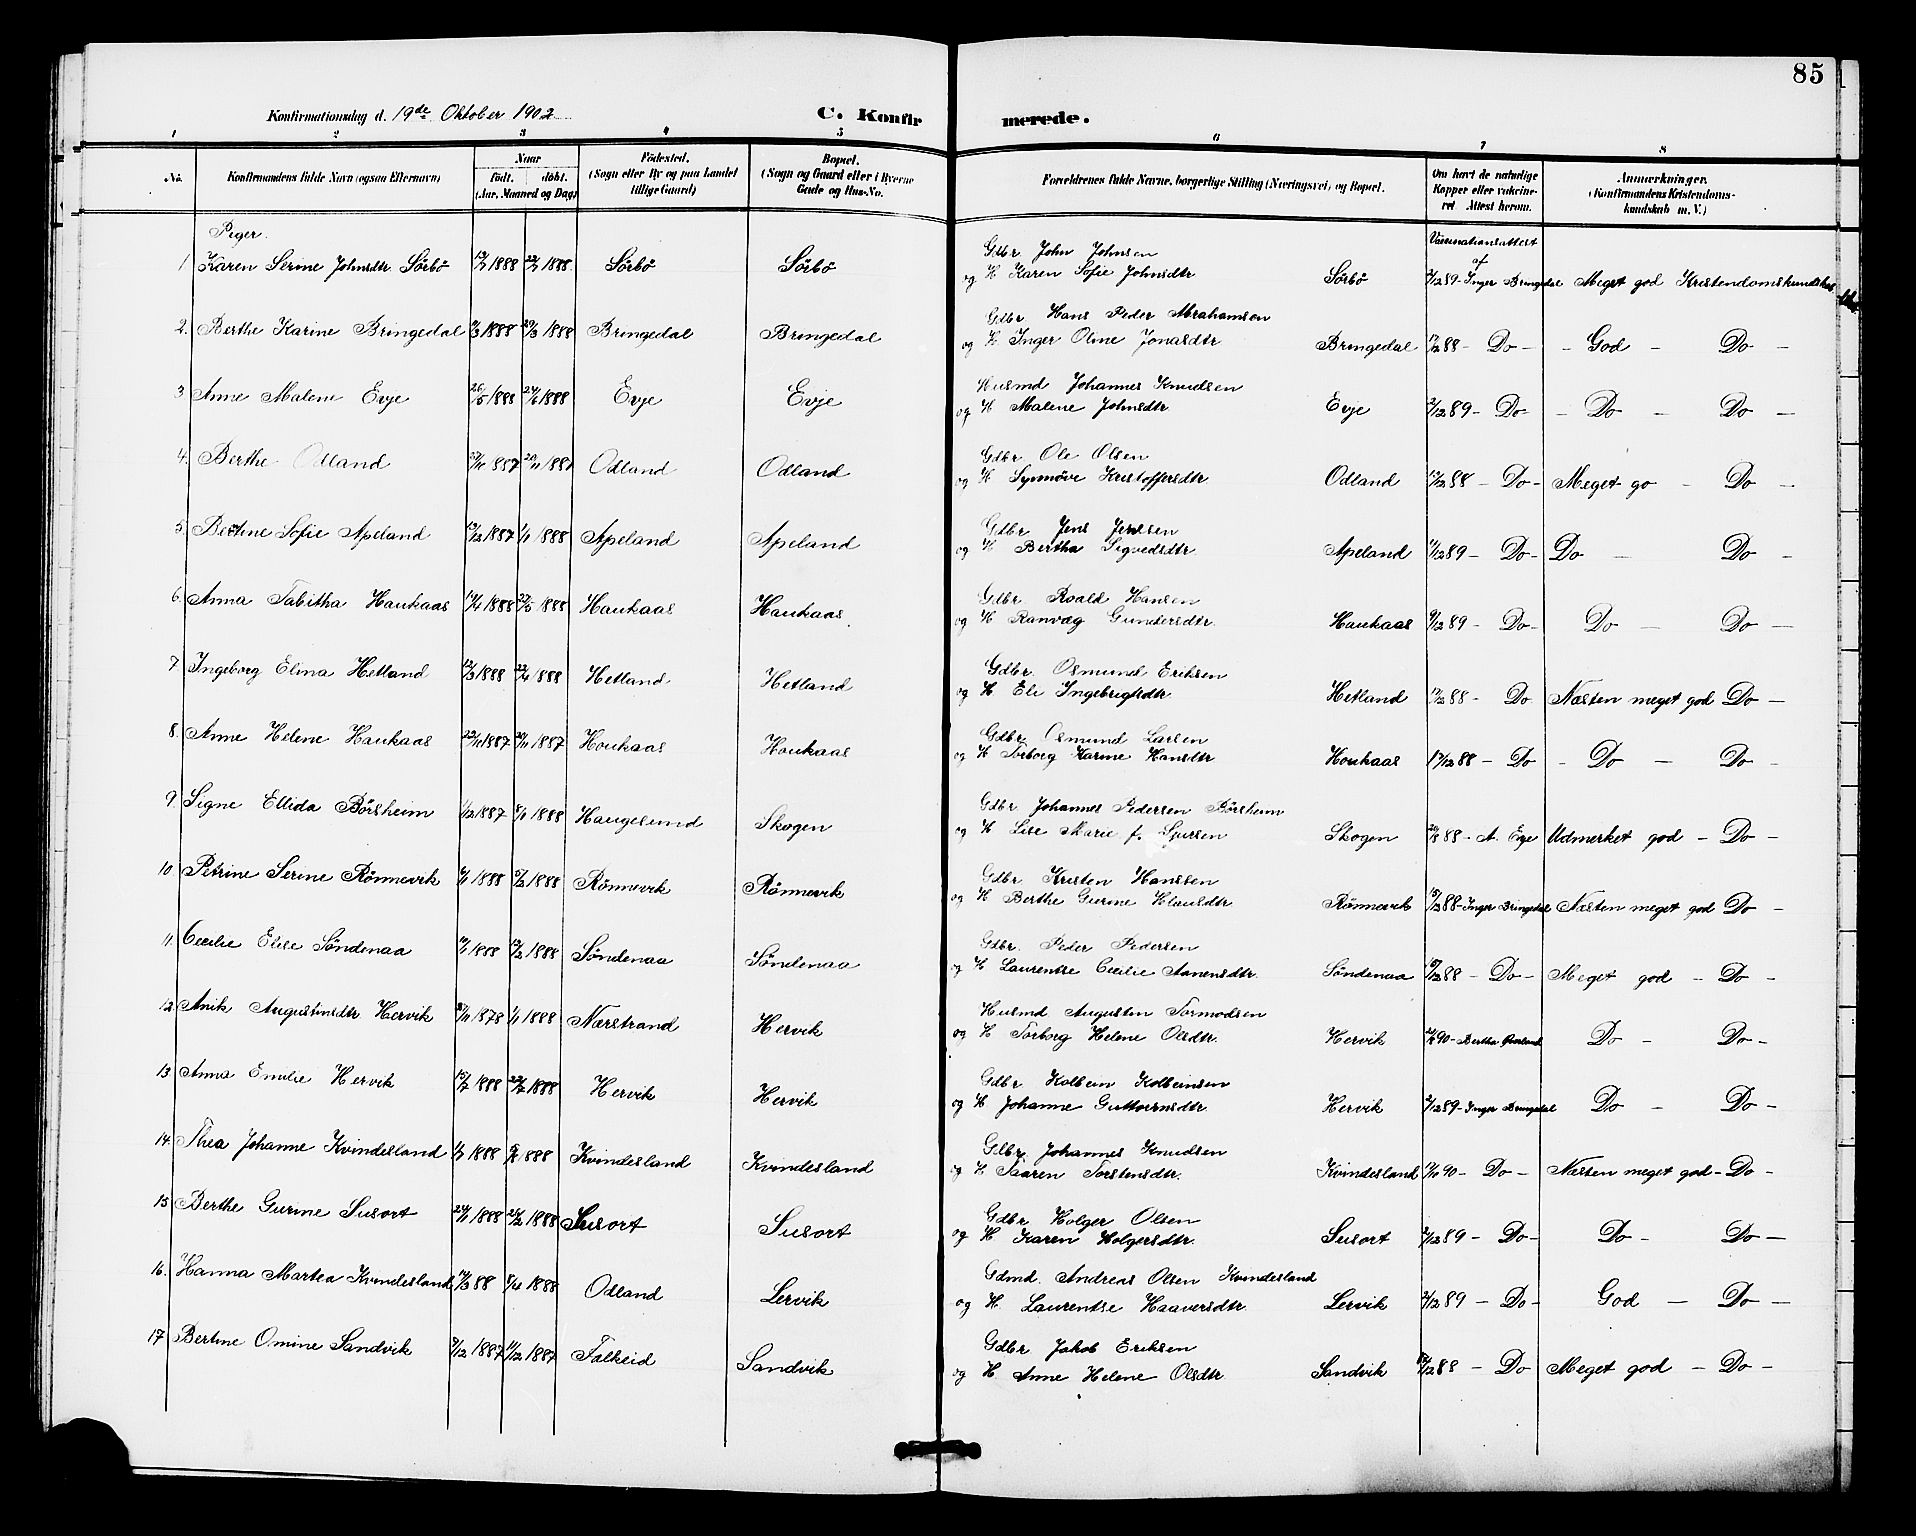 85
Konfirmationsdag d. 19de Oktober 1902
C. Konfirmerede.
1 2 3 4 5 6 7 8
No.
Konfirmandens fulde Navn (ogsaa Efternavn)
Naar
født. døbt.
(Aar, Maaned og Dag)
Födested.
(Sogn eller By og paa Landet
tillige Gaard)
Bopæl.
(Sogn og Gaard eller i Byerne
Gade og Hus-No.
Forældrenes fulde Navne, borgerlige Stilling (Næringsvei) og Bopæl.
Om havt de naturlige
Kopper eller vakcine-
ret Attest herom.
Anmærkninger.
(Konfirmandens Kristendoms-
kundskab m. V.)
Piger.
Vaccinationsattest
af
Gdbr John Johnsen
1 Karen Serine Johnsdtr Sörbö 1888 1888 Sörbö Sörbö
og H Karen Sofie Johnsdtr Sörbö 2/12 89 - Inger Bringedal Meget god Kristendomskundskab
Gdbr Hans Peder Abrahamsen
2. Berthe Karine Bringedal 1888 29/3 1888 Bringedal Bringedal
og H Inger Oline Jonasdtr Bringedal 17/12 88 - Do - - God - Do -
Husmd Johannes Knudsen
3. Anne Malene Evje 26/5 1888 24/6 1888 Evje Evje
og H Malene Johnsdtr Evje 2/12 89 - Do - - Do - Do -
Gdbr Ole Olsen
4. Berthe Odland 1887 20/11 1887 Odland Odland
og H Synnöve Kristoffersdtr Odland 17/12 88 - Do - Meget go - Do -
Gdbr Jens Jensen
5. Bertine Sofie Apeland 12/12 1887 1/1 1888 Apeland Apeland
og H Bertha Sigvedsdtr Apeland 89 - Do - Do - Do -
Gdbr Roald Hansen
6. Anna Tabitha Haukaas 1888 27/5 1888 Haukaas Haukaas
og H Ranvæg Gundersdtr Haukaas 9/12 89 - Do - Do - Do -
Gdbr Osmund Eriksen
7. Ingeborg Elina Hetland 12/3 1888 22/4 1888 Hetland Hetland
og H Eli Ingebrigtsdtr Hetland 17/12 88 - Do Næsten meget god Do -
Gdbr Osmund Larsen
8. Anne Helene Haukaas 1887 1887 Houkaas Houkaas
og H Torborg Karine Hansdtr Houkaas 17/12 88 - Do - Do - Do -
Gdbr Johannes Pedersen Börsheim
9. Signe Ellida Börsheim 1/12 1887 8/1 1888 Haugesund Skogen
og H Lise Marie f. Sjursen Skogen 88 - A. Evje Udmerket god - Do -
Gdbr Kristen Hansen
10. Petrine Serine Rönnevik 1888 1888 Rönnevik Rönnevik
og H Berthe Gurine Klausdtr Rönnevik 88 - Inger Bringedal Næsten meget god Do -
Gdbr. Peder Pedersen
11. Cecilie Elise Söndenaa 1888 12/2 1888 Söndenaa Söndenaa
og H Laurentse Cecilie Aanensdtr. Söndenaa 88 - Do - Meget god - Do -
Husmd Augustin Tormodsen
12. Anik Augustinsdtr Hervik 1878 1/1 1888 Nærstrand Hervik
og H Torborg Helene Olsdtr. Hervik 90 - Bertha Do - Do -
Gdbr Kolbein Kolbeinsen
13. Anna Emilie Hervik 1888 1888 Hervik Hervik
og H Johanne Guttormsdtr Hervik 2/12 89 - Inger Bringedal Do - Do -
Gdbr Johannes Knudsen
14. Thea Johanne Kvindesland 1888 1888 Kvindesland Kvindesland
og H Taaren Torstensdtr. Kvindesland 90 - Do - Næsten meget god - Do -
Gdbr Holger Olsen
15 Berthe Gurine Susort 1888 26/2 1888 Susort Susort
og H Karen Holgersdtr. Susort 2/12 89 - Do - Do - Do -
Gdmd. Andreas Olsen Kvindesland
16. Hanna Martea Kvindesland 88 1888 Odland Lervik
og H. Laurentse Haaversdtr Lervik 2/12 89 - Do - God - Do -
Gdbr Jakob Eriksen
17 Bertine Omine Sandvik 1887 1887 Falkeid Sandvik
og H Anne Helene Olsdtr Sandvik 88 - Do Meget god - Do -